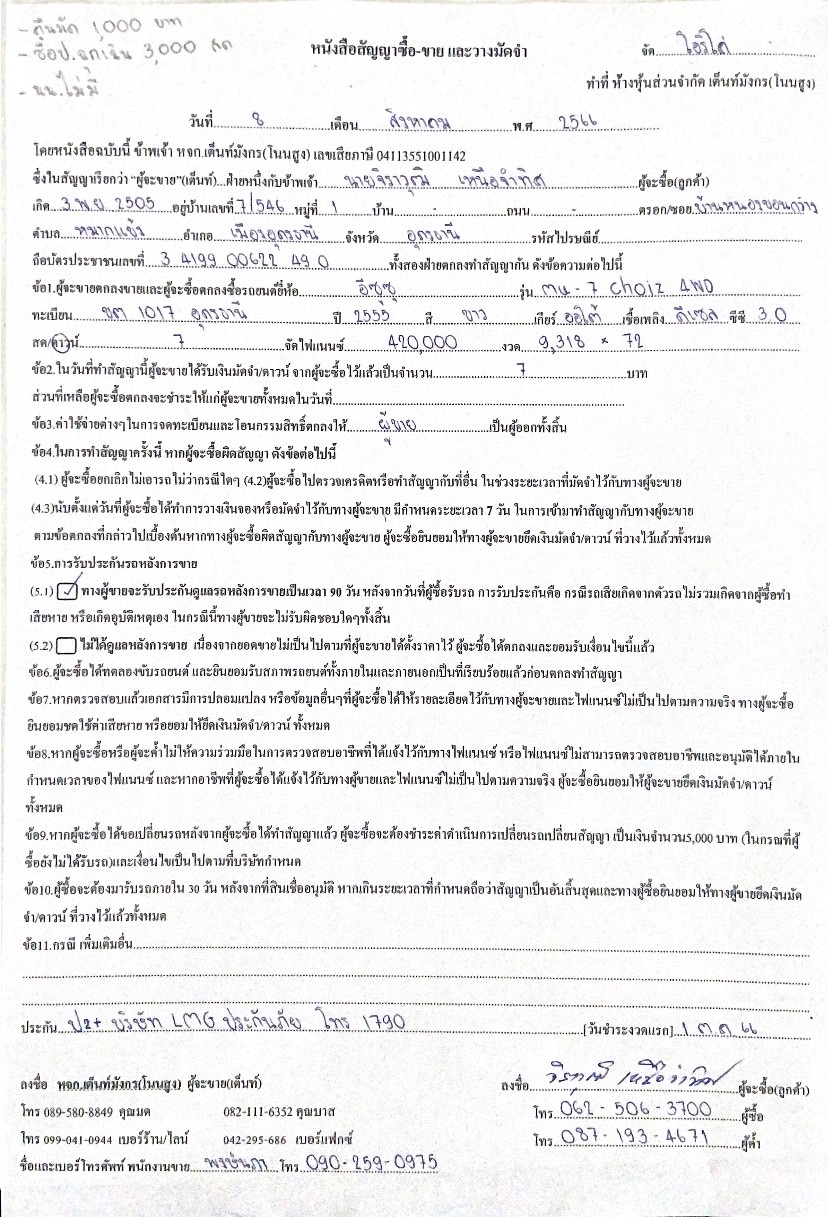 - คืนมัด 1,000 บาท
- ช๊อป.ฉุกเฉิน 3,000 สด
- นน.ไม่มี
หนังสือสัญญาซื้อ-ขาย และวางมัดจำ จัด ไอริได่
ทำที่ ห้างหุ้นส่วนจำกัด เต็นท์มังกร(โนนสูง)
วันที่ 8 เดือน สิงหาคม พ.ศ. 2566
โดยหนังสือฉบับนี้ ข้าพเจ้า หจก.เต็นท์มังกร(โนนสูง) เลขเสียภาษี 04113551001142
ซึ่งในสัญญาเรียกว่า "ผู้จะขาย"(เต็นท์)...ฝ่ายหนึ่งกับข้าพเจ้า นายจิราวุฒิ เหนือจำทิศ ผู้จะซื้อ(ลูกค้า)
เกิด 3 พ.ย 2505 อยู่บ้านเลขที่ 7/546 หมู่ที่ 1 บ้าน - ถนน - ตรอก/ซอย บ้านหนองขอนกว้าง
ตำบล หมากแข้ง อำเภอ เมืองอุดรธานี จังหวัด อุดรธานี รหัสไปรษณีย์
ถือบัตรประชาชนเลขที่ 3 4199 00622 49 0 ทั้งสองฝ่ายตกลงทำสัญญากัน ดังข้อความต่อไปนี้
ข้อ1.ผู้จะขายตกลงขายและผู้จะซื้อตกลงซื้อรถยนต์ยี่ห้อ อีซูซุ รุ่น mu-7 Choiz 4WD
ทะเบียน ขต 1017 อุดรธานี ปี 2555 สี ขาว เกียร์ ออโต้ เชื้อเพลิง ดีเซล ซีซี 3.0
สด/ดาวน์ 7 จัดไฟแนนซ์ 420,000 งวด 9,318 × 72
ข้อ2.ในวันที่ทำสัญญานี้ผู้จะขายได้รับเงินมัดจำ/ดาวน์ จากผู้จะซื้อไว้แล้วเป็นจำนวน 7 บาท
ส่วนที่เหลือผู้จะซื้อตกลงจะชำระให้แก่ผู้จะขายทั้งหมดในวันที่
ข้อ3.ค่าใช้จ่ายต่างๆในการจดทะเบียนและโอนกรรมสิทธิ์ตกลงให้ ผู้ขาย เป็นผู้ออกทั้งสิ้น
ข้อ4.ในการทำสัญญาครั้งนี้ หากผู้จะซื้อผิดสัญญา ดังข้อต่อไปนี้
(4.1) ผู้จะซื้อยกเลิกไม่เอารถไม่ว่ากรณีใดๆ (4.2)ผู้จะซื้อไปตรวจเครดิตหรือทำสัญญากับที่อื่น ในช่วงระยะเวลาที่มัดจำไว้กับทางผู้จะขาย
(4.3)นับตั้งแต่วันที่ผู้จะซื้อได้ทำการวางเงินจองหรือมัดจำไว้กับทางผู้จะขาย มีกำหนดระยะเวลา 7 วัน ในการเข้ามาทำสัญญากับทางผู้จะขาย
ตามข้อตกลงที่กล่าวไปเบื้องต้นหากทางผู้จะซื้อผิดสัญญากับทางผู้จะขาย ผู้จะซื้อยินยอมให้ทางผู้จะขายยึดเงินมัดจำ/ดาวน์ ที่วางไว้แล้วทั้งหมด
ข้อ5.การรับประกันรถหลังการขาย
(5.1) ☑ ทางผู้ขายจะรับประกันดูแลรถหลังการขายเป็นเวลา 90 วัน หลังจากวันที่ผู้ซื้อรับรถ การรับประกันคือ กรณีรถเสียเกิดจากตัวรถไม่รวมเกิดจากผู้ซื้อทำ
เสียหาย หรือเกิดอุบัติเหตุเอง ในกรณีนี้ทางผู้ขายจะไม่รับผิดชอบใดๆทั้งสิ้น
(5.2) ☐ ไม่ได้ดูแลหลังการขาย เนื่องจากยอดขายไม่เป็นไปตามที่ผู้จะขายได้ตั้งราคาไว้ ผู้จะซื้อได้ตกลงและยอมรับเงื่อนไขนี้แล้ว
ข้อ6.ผู้จะซื้อได้ทดลองขับรถยนต์ และยินยอมรับสภาพรถยนต์ทั้งภายในและภายนอกเป็นที่เรียบร้อยแล้วก่อนตกลงทำสัญญา
ข้อ7.หากตรวจสอบแล้วเอกสารมีการปลอมแปลง หรือข้อมูลอื่นๆที่ผู้จะซื้อได้ให้รายละเอียดไว้กับทางผู้จะขายและไฟแนนซ์ไม่เป็นไปตามความจริง ทางผู้จะซื้อ
ยินยอมชดใช้ค่าเสียหาย หรือยอมให้ยึดเงินมัดจำ/ดาวน์ ทั้งหมด
ข้อ8.หากผู้จะซื้อหรือผู้จะค้ำไม่ให้ความร่วมมือในการตรวจสอบอาชีพที่ได้แจ้งไว้กับทางไฟแนนซ์ หรือไฟแนนซ์ไม่สามารถตรวจสอบอาชีพและอนุมัติได้ภายใน
กำหนดเวลาของไฟแนนซ์ และหากอาชีพที่ผู้จะซื้อได้แจ้งไว้กับทางผู้ขายและไฟแนนซ์ไม่เป็นไปตามความจริง ผู้จะซื้อยินยอมให้ผู้จะขายยึดเงินมัดจำ/ดาวน์
ทั้งหมด
ข้อ9.หากผู้จะซื้อได้ขอเปลี่ยนรถหลังจากผู้จะซื้อได้ทำสัญญาแล้ว ผู้จะซื้อจะต้องชำระค่าดำเนินการเปลี่ยนรถเปลี่ยนสัญญา เป็นเงินจำนวน5,000 บาท (ในกรณที่ผู้
ซื้อยังไม่ได้รับรถ)และเงื่อนไขเป็นไปตามที่บริษัทกำหนด
ข้อ10.ผู้ซื้อจะต้องมารับรถภายใน 30 วัน หลังจากที่สินเชื่ออนุมัติ หากเกินระยะเวลาที่กำหนดถือว่าสัญญาเป็นอันสิ้นสุดและทางผู้ซื้อยินยอมให้ทางผู้ขายยึดเงินมัด
จำ/ดาวน์ ที่วางไว้แล้วทั้งหมด
ข้อ11.กรณี เพิ่มเติมอื่น
ประกัน ป2+ บริษัท LMG ประกันภัย โทร 1790 [วันชำระงวดแรก] 1 ต.ค 66
ลงชื่อ หจก.เต็นท์มังกร(โนนสูง) ผู้จะขาย(เต็นท์) ลงชื่อ ผู้จะซื้อ(ลูกค้า)
โทร 089-580-8849 คุณมด 082-111-6352 คุณบาส โทร 062-506-3700 ผู้ซื้อ
โทร 099-041-0944 เบอร์ร้าน/ไลน์ 042-295-686 เบอร์แฟกซ์ โทร 087-193-4671 ผู้ค้ำ
ชื่อและเบอร์โทรศัพท์ พนักงานขาย พวงษ์นภา โทร 090-259-0975